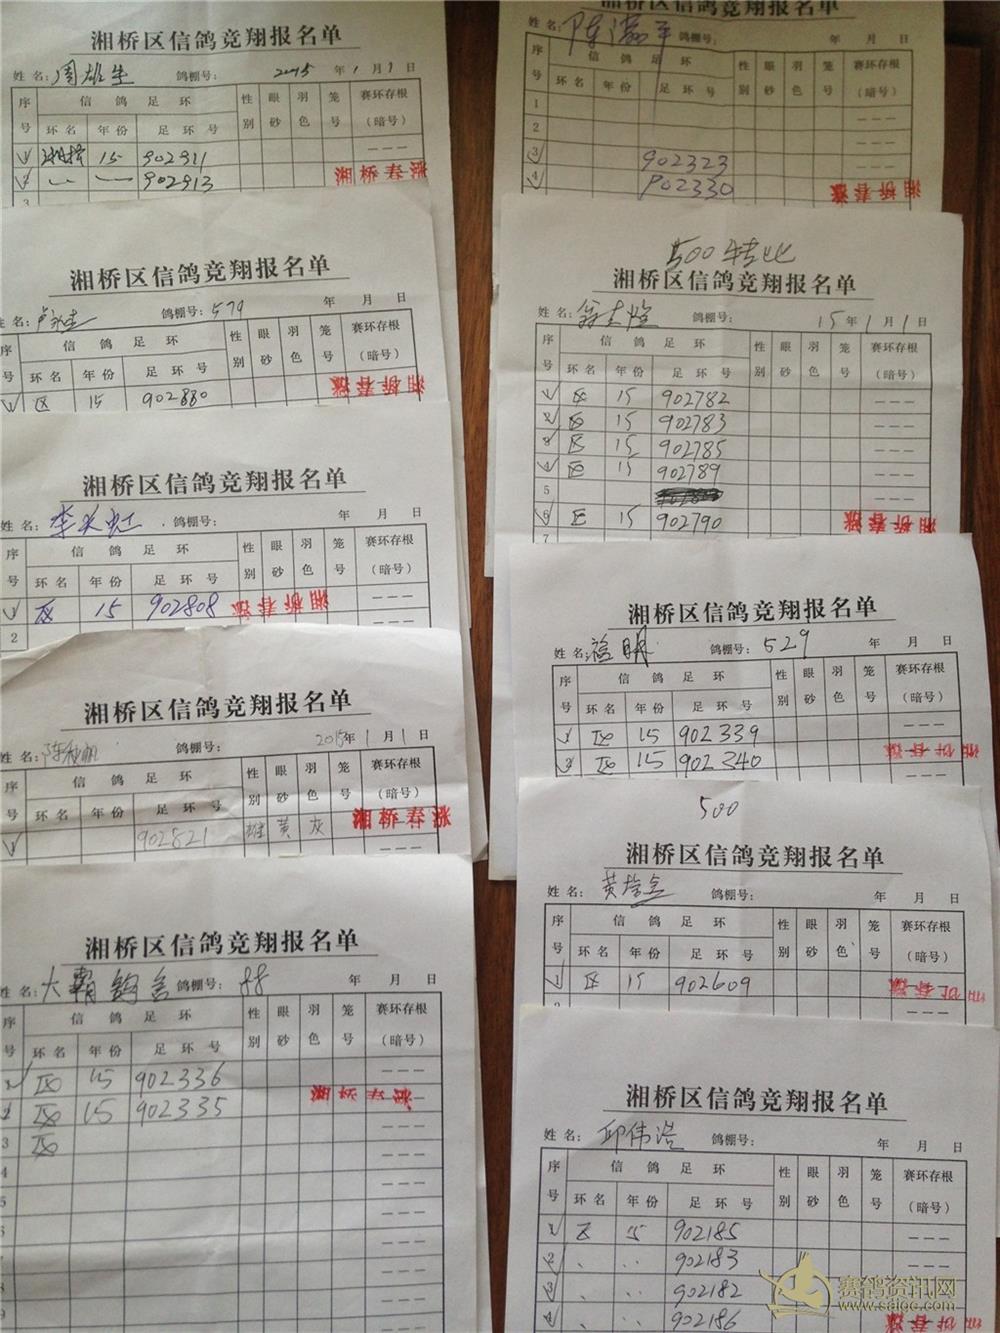 湘桥区信鸽竞翔报名单
姓名: 周雄生 鸽棚号: 2015 年 1 月 1 日
序号 信鸽足环 性别 眼砂 羽色 笼号 赛环存根(暗号)
环名 年份 足环号
1 湘桥 15 902911
2 902913
湘桥春
湘桥区信鸽竞翔报名单
姓名: 鸽棚号: 579 年 月 日
序号 信鸽足环 性别 眼砂 羽色 笼号 赛环存根(暗号)
环名 年份 足环号
1 区 15 902880
湘桥春
湘桥区信鸽竞翔报名单
姓名: 李 鸽棚号: 年 月 日
序号 信鸽足环 性别 眼砂 羽色 笼号 赛环存根(暗号)
环名 年份 足环号
1 区 15 902808
湘桥春
2
湘桥区信鸽竞翔报名单
姓名: 陈 鸽棚号: 2015年 1 月 1 日
序号 信鸽足环 性别 眼砂 羽色 笼号 赛环存根(暗号)
环名 年份 足环号
1 902821 雄 黄 灰
湘桥春
湘桥区信鸽竞翔报名单
姓名: 大霸鸽舍 鸽棚号: 88 年 月 日
序号 信鸽足环 性别 眼砂 羽色 笼号 赛环存根(暗号)
环名 年份 足环号
1 区 15 902336
2 区 15 902335
湘桥春
3 区
4
5
6
7
8
9
湘桥区信鸽竞翔报名单
姓名: 陈 平 鸽棚号: 年 月 日
序号 信鸽足环 性别 眼砂 羽色 笼号 赛环存根(暗号)
环名 年份 足环号
1
2
3 902323
4 902330
湘桥春
500 转比
湘桥区信鸽竞翔报名单
姓名: 鸽棚号: 15 年 1 月 1 日
序号 信鸽足环 性别 眼砂 羽色 笼号 赛环存根(暗号)
环名 年份 足环号
1 区 15 902782
2 区 15 902783
3 区 15 902785
4 区 15 902789
5
6 区 15 902790
湘桥春
7
湘桥区信鸽竞翔报名单
姓名: 明 鸽棚号: 529 年 月 日
序号 信鸽足环 性别 眼砂 羽色 笼号 赛环存根(暗号)
环名 年份 足环号
1 区 15 902339
2 区 15 902340
湘桥春
500
湘桥区信鸽竞翔报名单
姓名: 黄 鸽棚号: 年 月 日
序号 信鸽足环 性别 眼砂 羽色 笼号 赛环存根(暗号)
环名 年份 足环号
1 区 15 902609
湘桥区信鸽竞翔报名单
姓名: 邱伟浩 鸽棚号: 年 月 日
序号 信鸽足环 性别 眼砂 羽色 笼号 赛环存根(暗号)
环名 年份 足环号
1 区 15 902185
2 902183
3 902182
4 902186
湘桥春
赛鸽资讯网
www.saigc.com